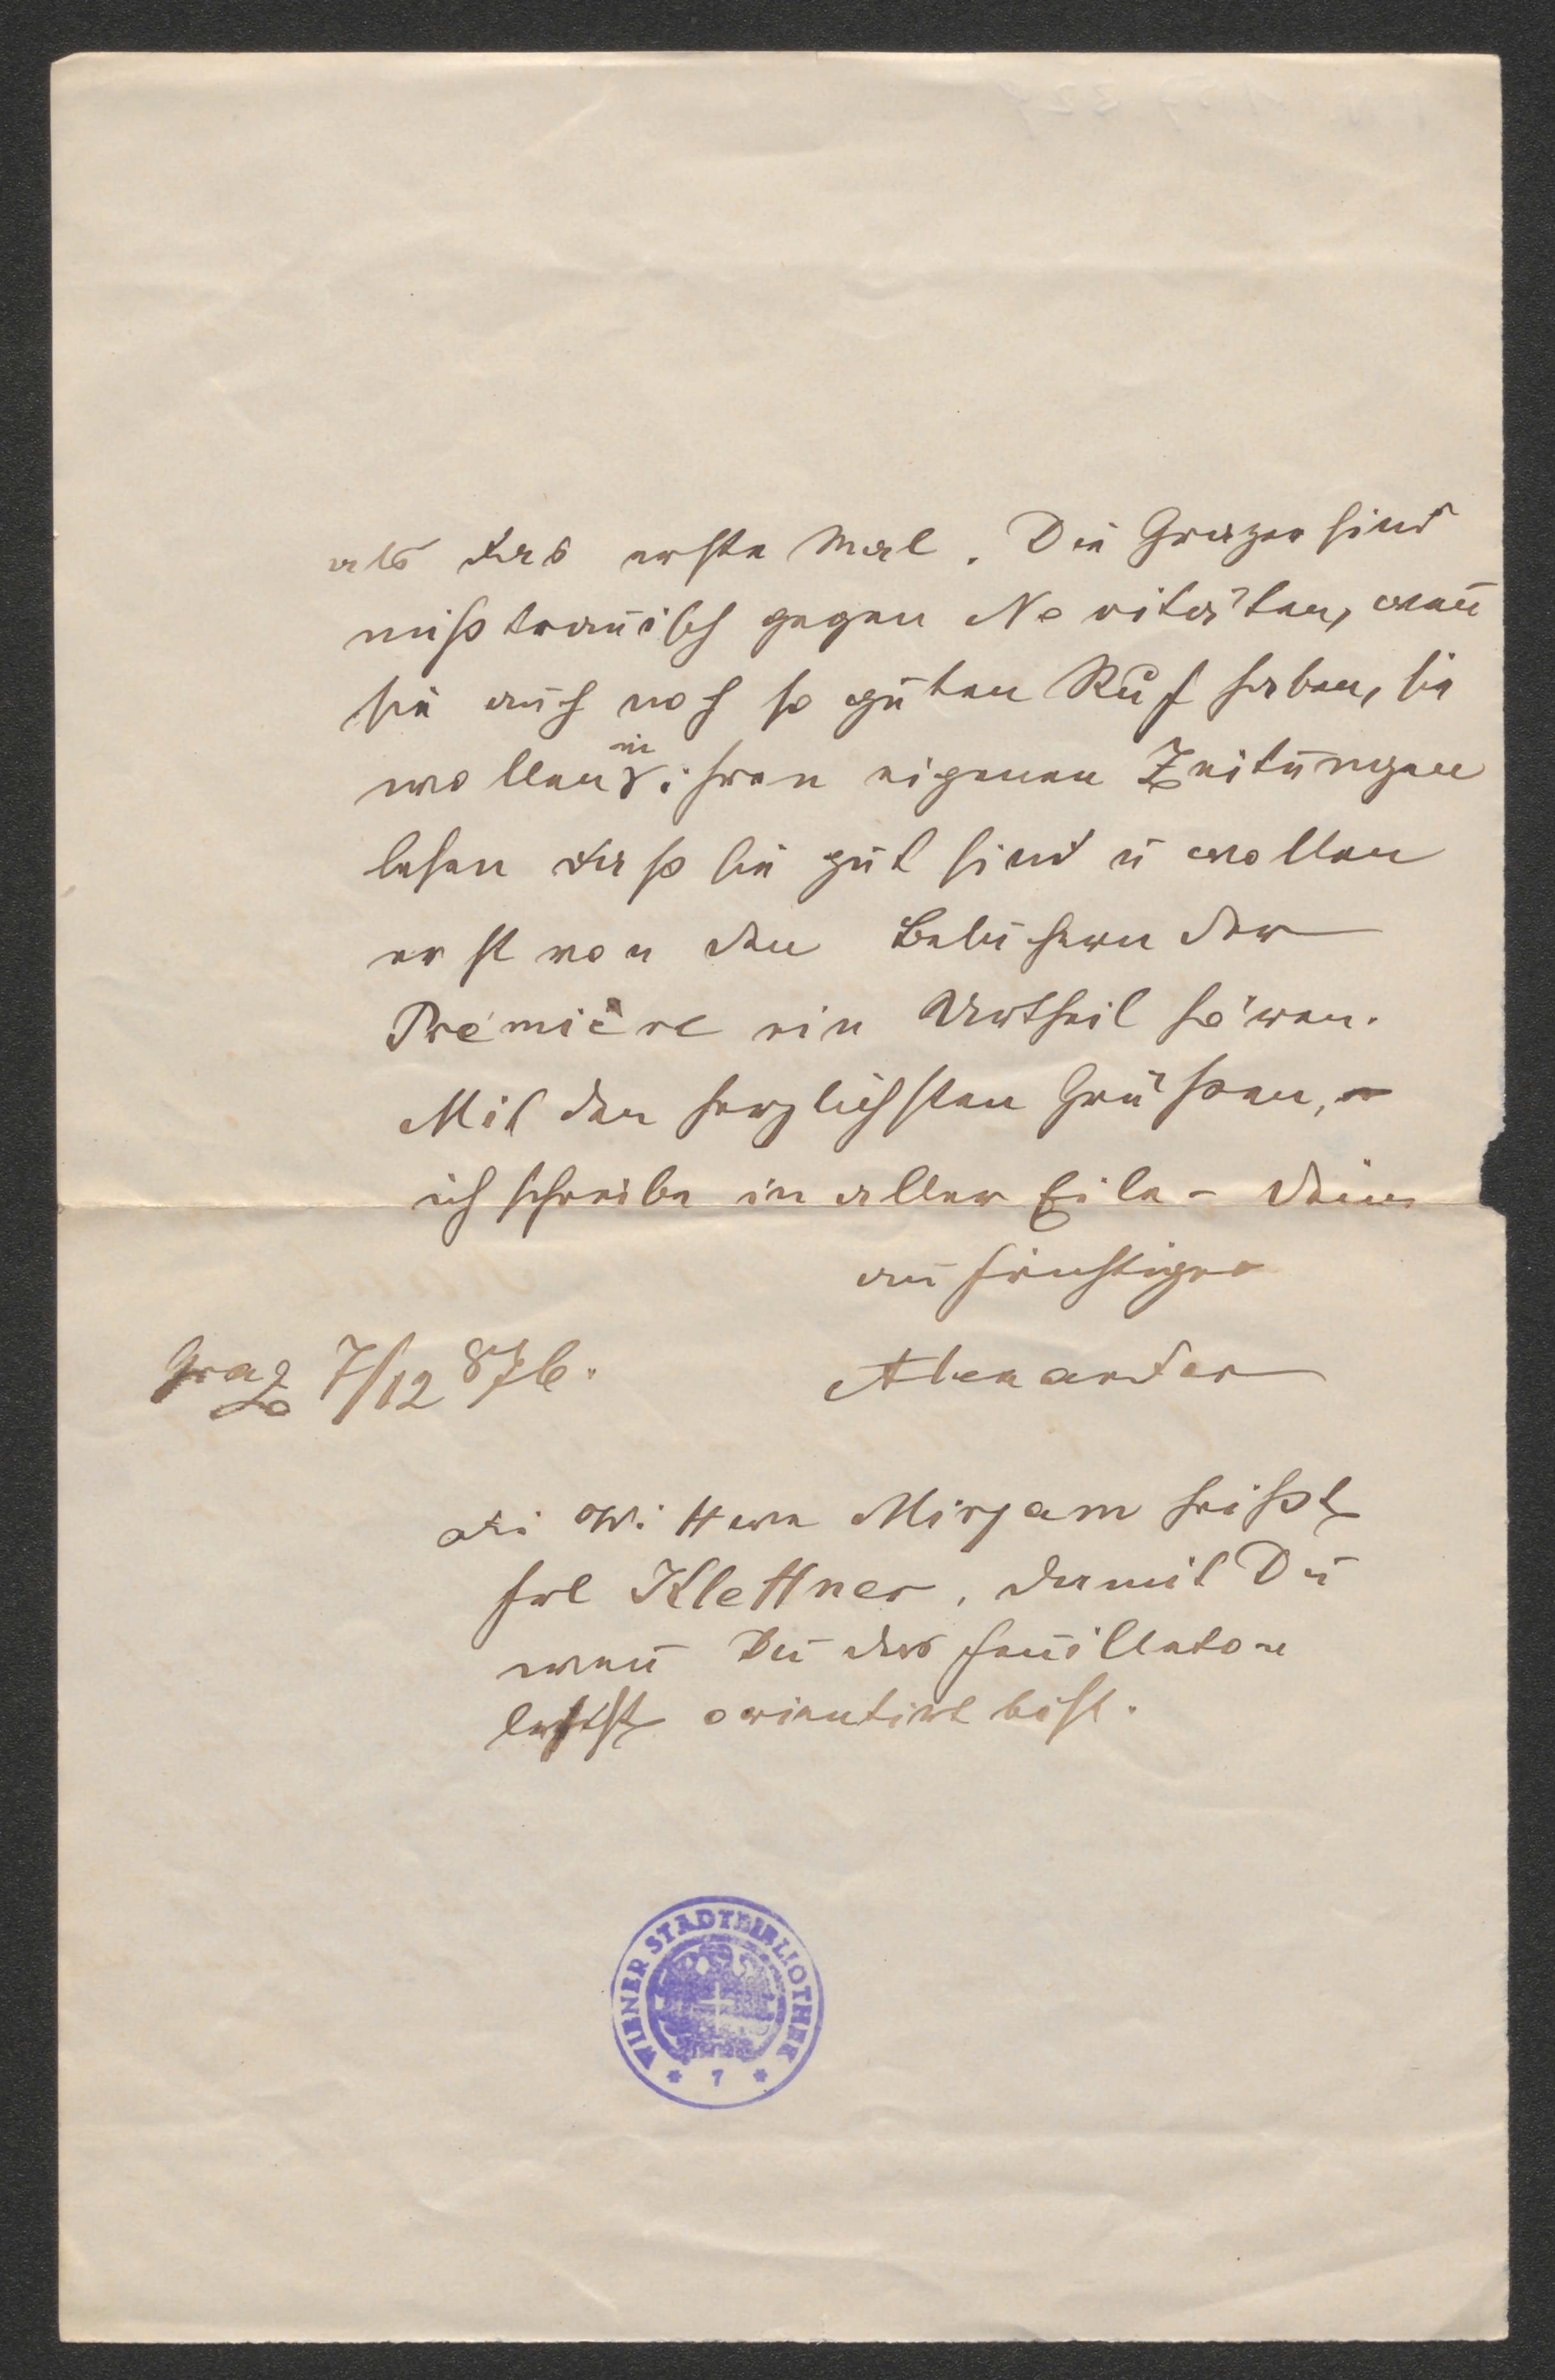 als das erste Mal. Die Grazer sind
mißtrauisch gegen Novitäten, wen̅
sie auch noch so guten Ruf haben, sie
wollen in ihren eigenen Zeitungen
lesen daß sie gut sind u wollen
erst von den Besuchern der
Première ein Urtheil hören.
Mit den herzlichsten Grüßen, –
ich schreibe in aller Eile – Dein
aufrichtiger
Graz 7/12 876. Alexander
Die Wittwe Mirjam heißt
Frl Klettner, damit Du
wen̅ Du das Feuilleton
liest orientirt bist.
WIENER STADTBIBLIOTHEK
* 7 *